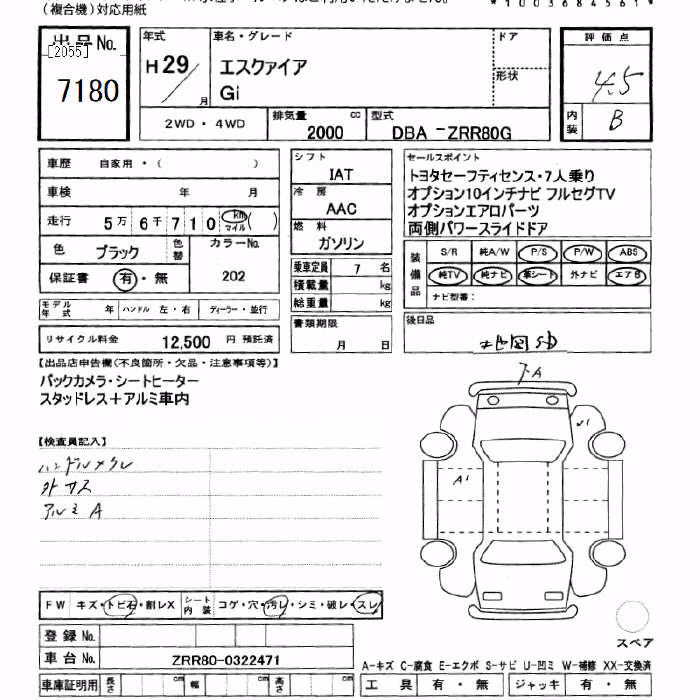 (複合機)対応用紙
*10036845 61*
出品No.
[2055]
7180
年式
H29/ 月
車名・グレード
エスクァイア
Gi
ドア
形状
評価点
4.5
内装
B
2WD・4WD
排気量 cc
2000
型式
DBA -ZRR80G
車歴 自家用・( )
車検 年 月
走行 5万6千710 km マイル ( )
色 ブラック 色替 カラーNo.
保証書 有・無 202
モデル年式 年 ハンドル 左・右 ディーラー・並行
リサイクル料金 12,500 円 預託済
シフト
IAT
冷房
AAC
燃料
ガソリン
乗車定員 7 名
積載量 kg
総重量 kg
書類期限
月 日
セールスポイント
トヨタセーフティセンス・7人乗り
オプション10インチナビ フルセグTV
オプションエアロパーツ
両側パワースライドドア
装備品
S/R 純A/W P/S P/W ABS
純TV 純ナビ 革シート 外ナビ エアB
ナビ型番:
後日品
【出品店申告欄(不良箇所・欠品・注意事項等)】
バックカメラ・シートヒーター
スタッドレス+アルミ車内
【検査員記入】
ハンドルスレ
外 サス
アルミ A
下A
A1
FW キズ・トビ石・割レX シート内装 コゲ・穴・汚レ・シミ・破レ・スレ
登録No.
車台No. ZRR80-0322471
車庫証明用 長さ cm 幅 cm 高さ cm
スペア
A-キズ C-腐食 E-エクボ S-サビ U-凹ミ W-補修 XX-交換済
工具 有・無 ジャッキ 有・無